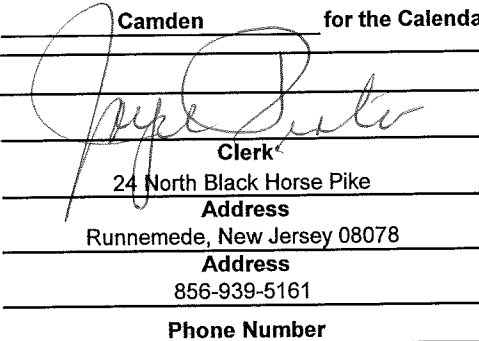 Camden for the Calenda
Joyce
Clerk
24 North Black Horse Pike
Address
Runnemede, New Jersey 08078
Address
856-939-5161
Phone Number